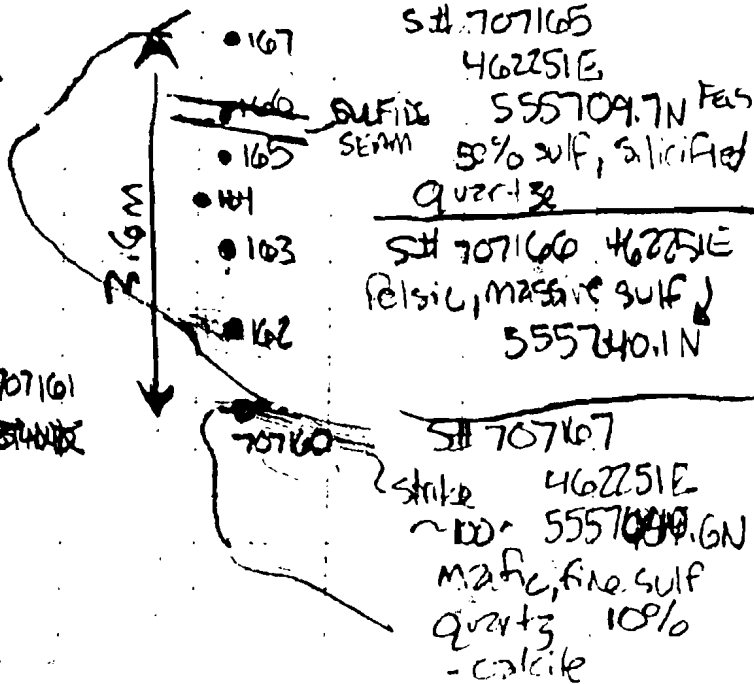 • 167
166
SULFIDE
SEAM
• 165
• 164
• 163
• 162
3.6m
707161
707160
strike
~100°
S# 707165
462251E
555709.7N Fels
50% sulf, silicified
quartz
S# 707166 462251E
Felsic, massive sulf
5557040.1N
S# 707167
462251E
.6N
mafic, fine sulf
quartz 10%
- calcite